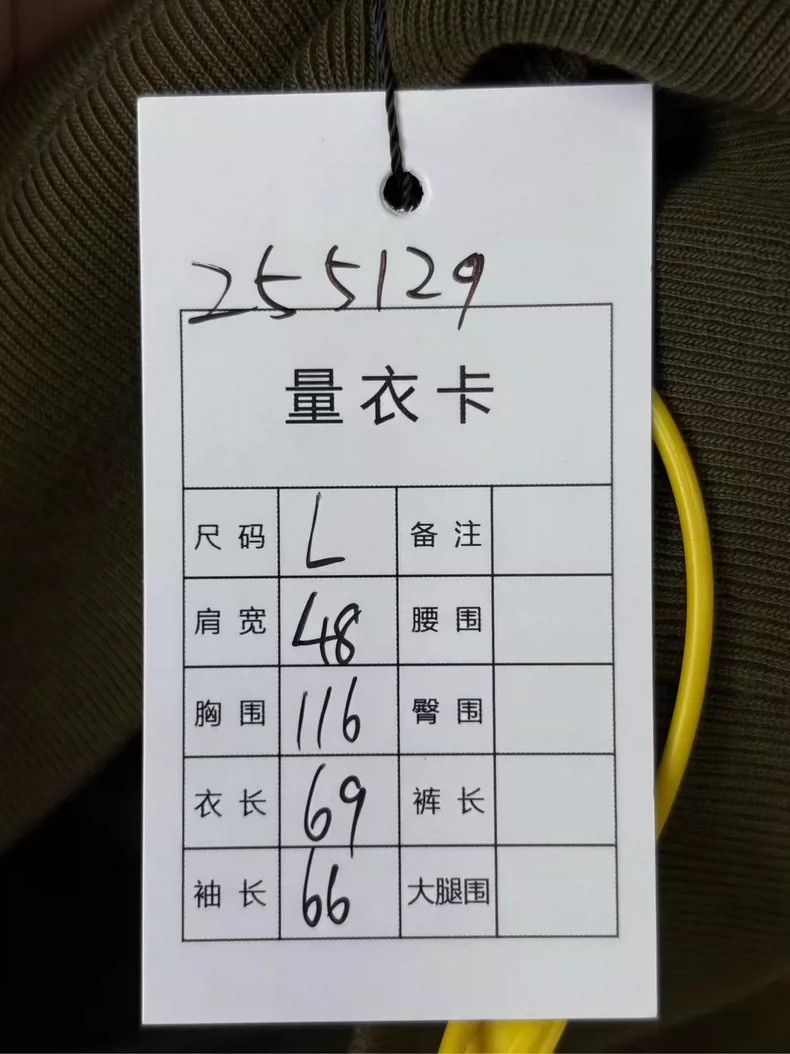 255129
量衣卡
尺码 L 备注
肩宽 48 腰围
胸围 116 臀围
衣长 69 裤长
袖长 66 大腿围